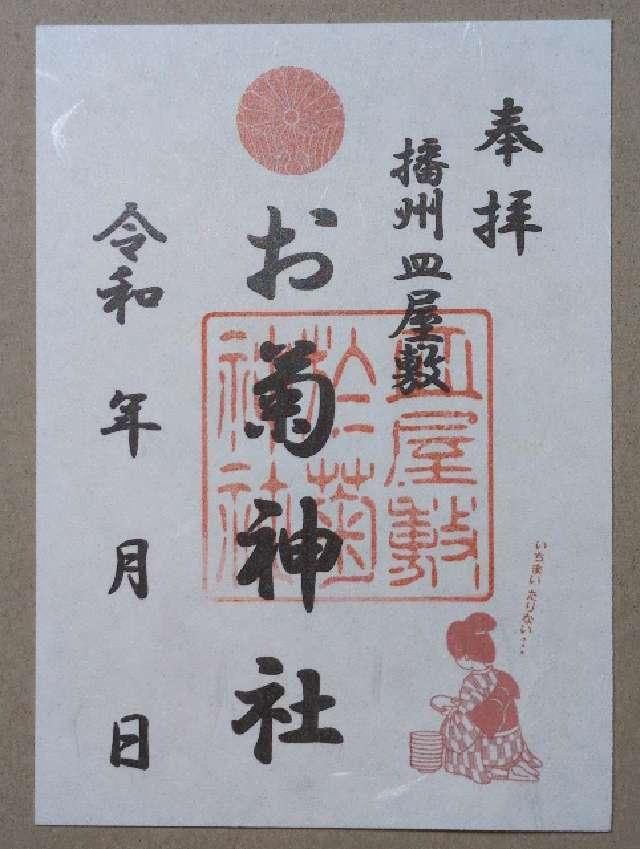 奉拝
播州皿屋敷
皿屋敷
於菊
神社
お菊神社
令和 年 月 日
いちまいたりない・・・